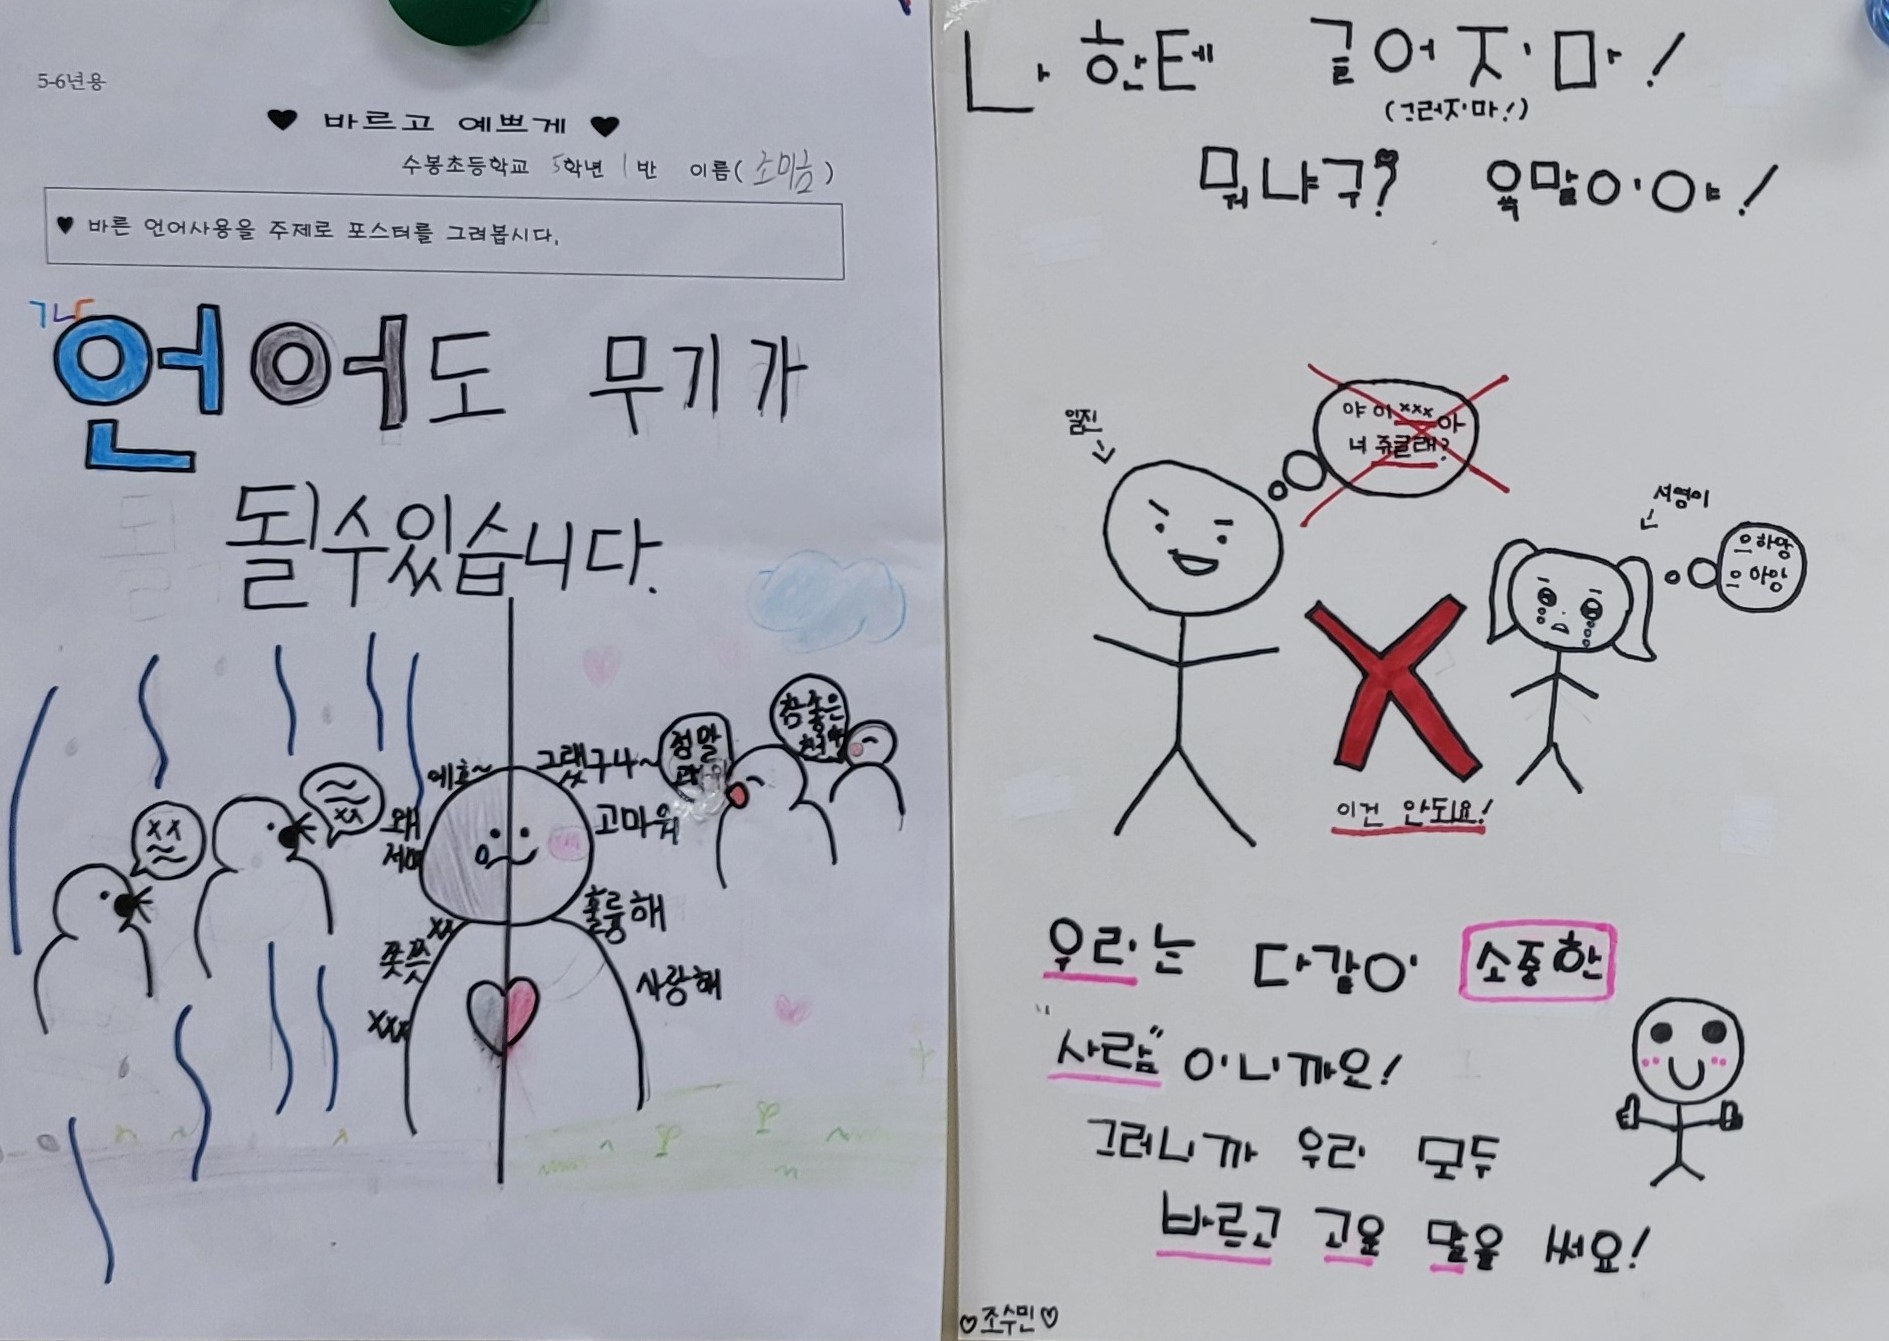 5-6년용
♥ 바르고 예쁘게 ♥
수봉초등학교 5학년 1반 이름(조미금)
♥ 바른 언어사용을 주제로 포스터를 그려봅시다.
언어도 무기가
될수있습니다.
에효~
왜
xx
쯧쯧
xxx
xx
xx
그랬구나~
고마워
훌륭해
사랑해
정말
참 좋은
나한테 글어지마!
(그러지마!)
뭐냐구? 욕말이야!
일진
야 이 xxx아
너 쥬글래?
서영이
으하앙
으하앙
이건 안되요!
우리는 다같이 소중한
"사람"이니까요!
그러니까 우리 모두
바르고 고운 말을 써요!
♡조수민♡